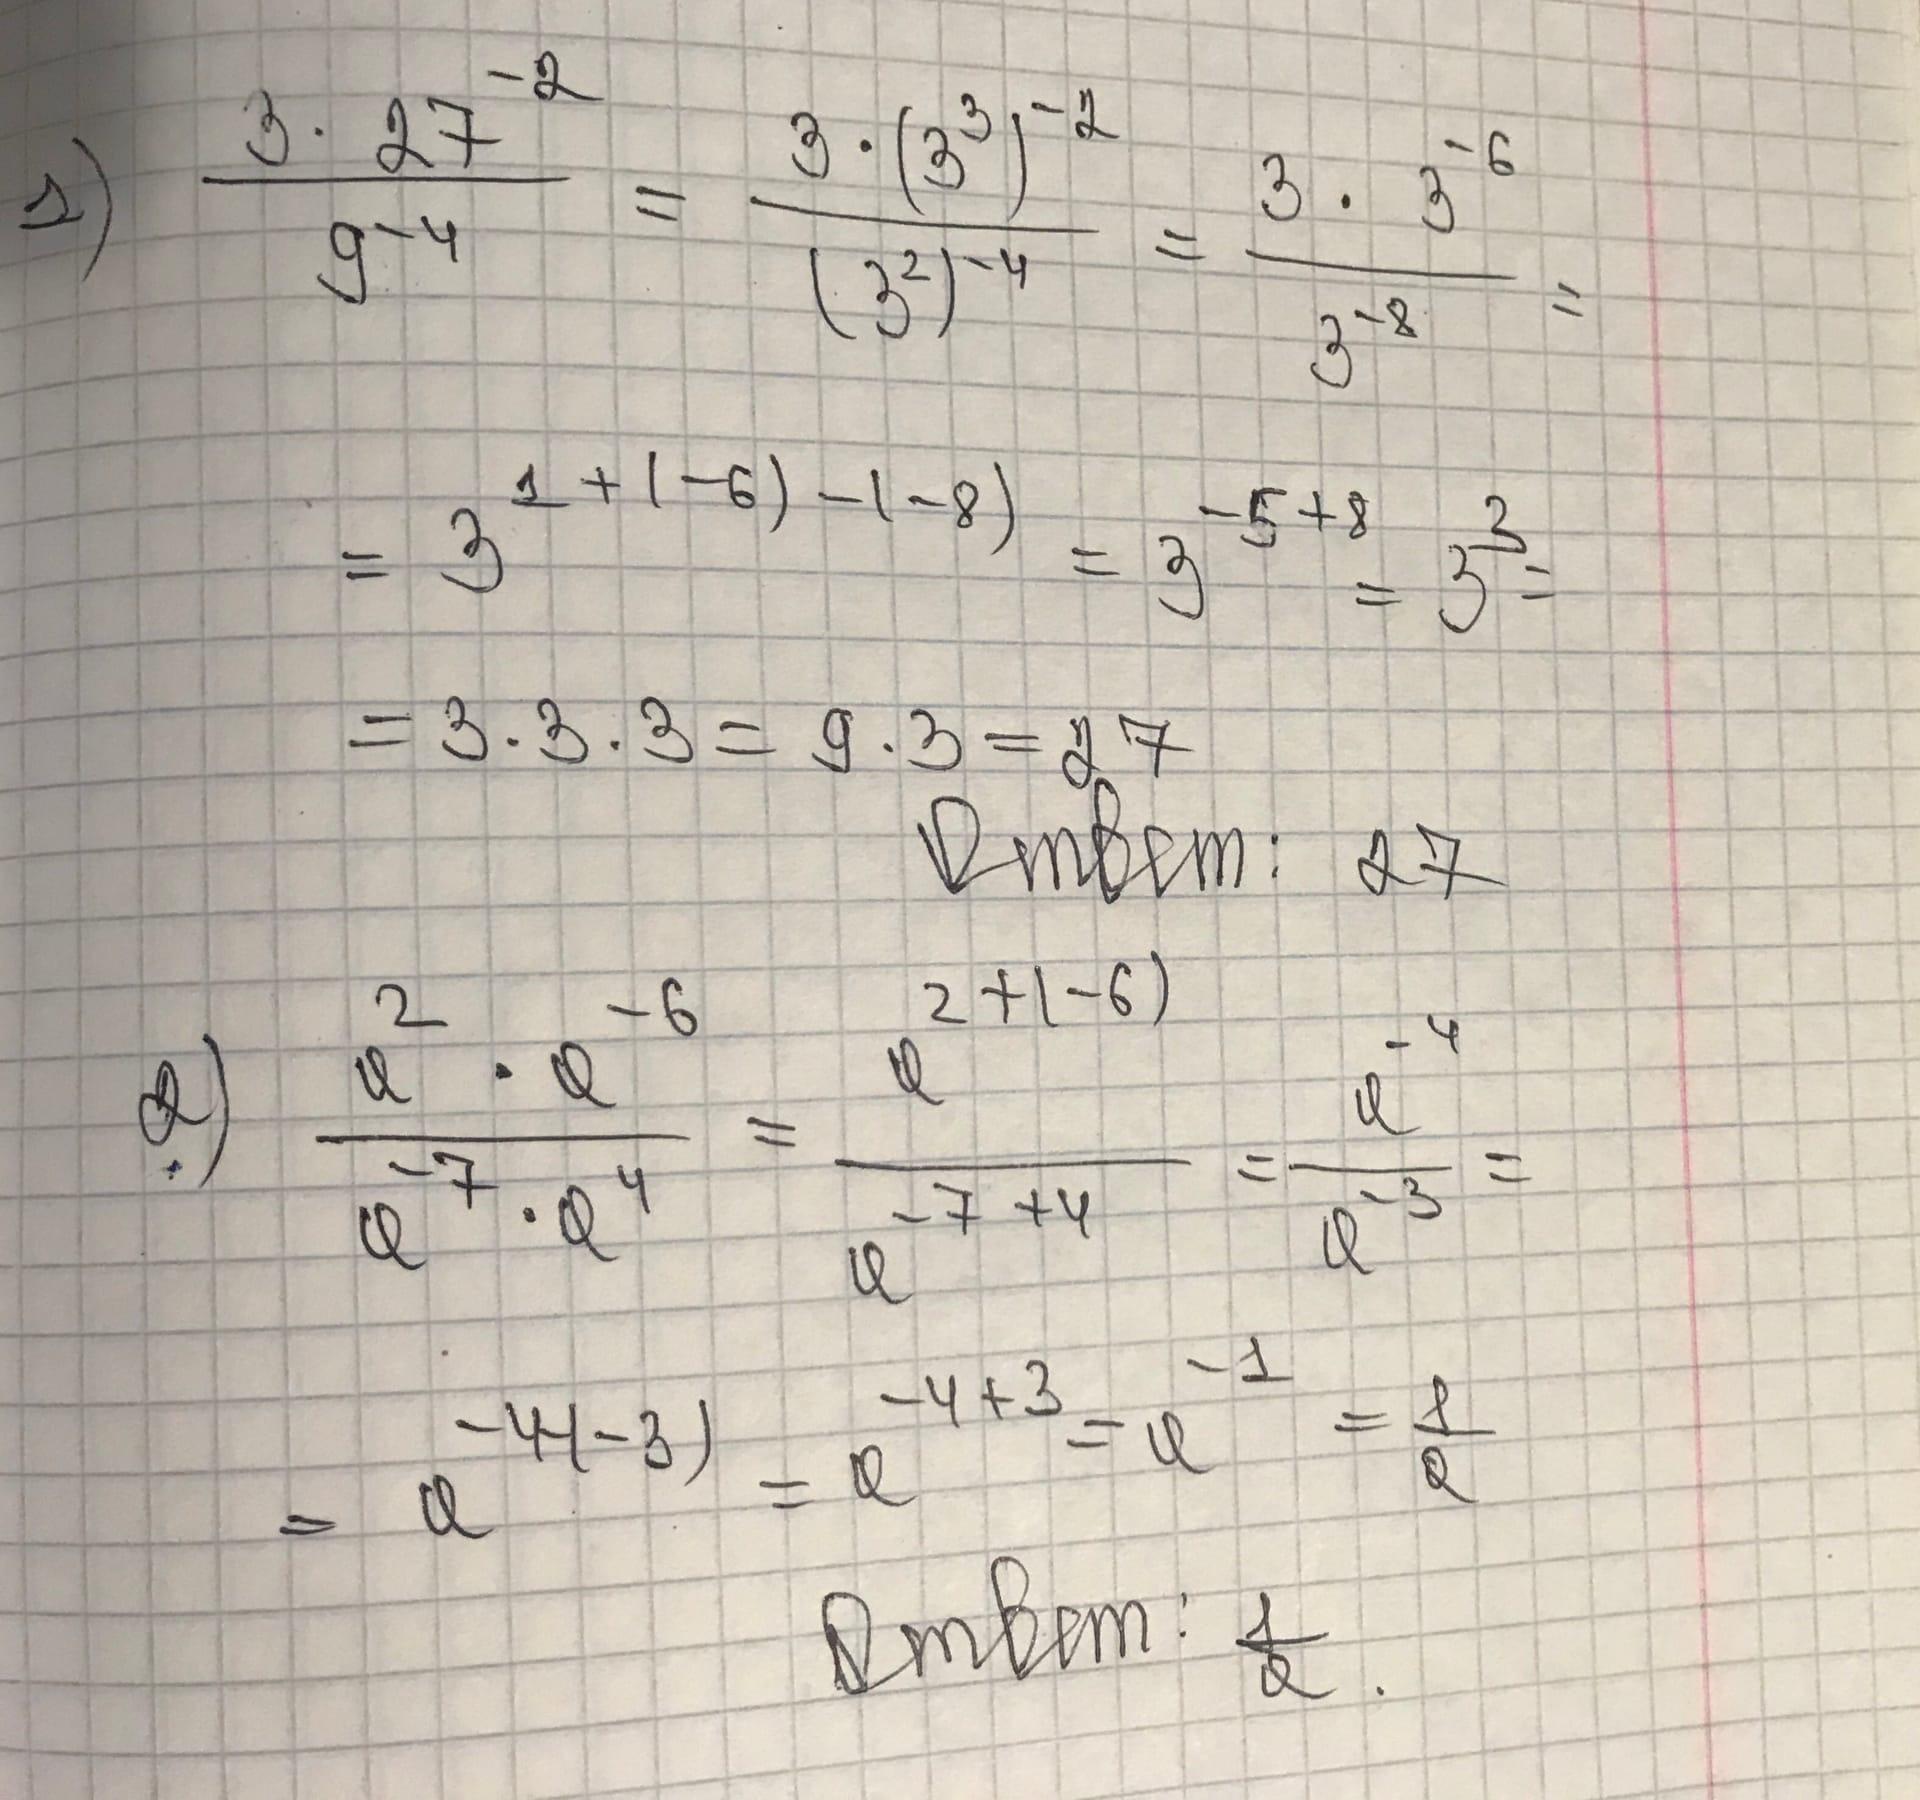 1) \frac{3 \cdot 27^{-2}}{9^{-4}} = \frac{3 \cdot (3^3)^{-2}}{(3^2)^{-4}} = \frac{3 \cdot 3^{-6}}{3^{-8}} =
= 3^{1+(-6)-(-8)} = 3^{-5+8} = 3^3 =
= 3 \cdot 3 \cdot 3 = 9 \cdot 3 = 27
Ответ: 27
2) \frac{a^2 \cdot a^{-6}}{a^{-7} \cdot a^4} = \frac{a^{2+(-6)}}{a^{-7+4}} = \frac{a^{-4}}{a^{-3}} =
= a^{-4-(-3)} = a^{-4+3} = a^{-1} = \frac{1}{a}
Ответ: \frac{1}{a}.